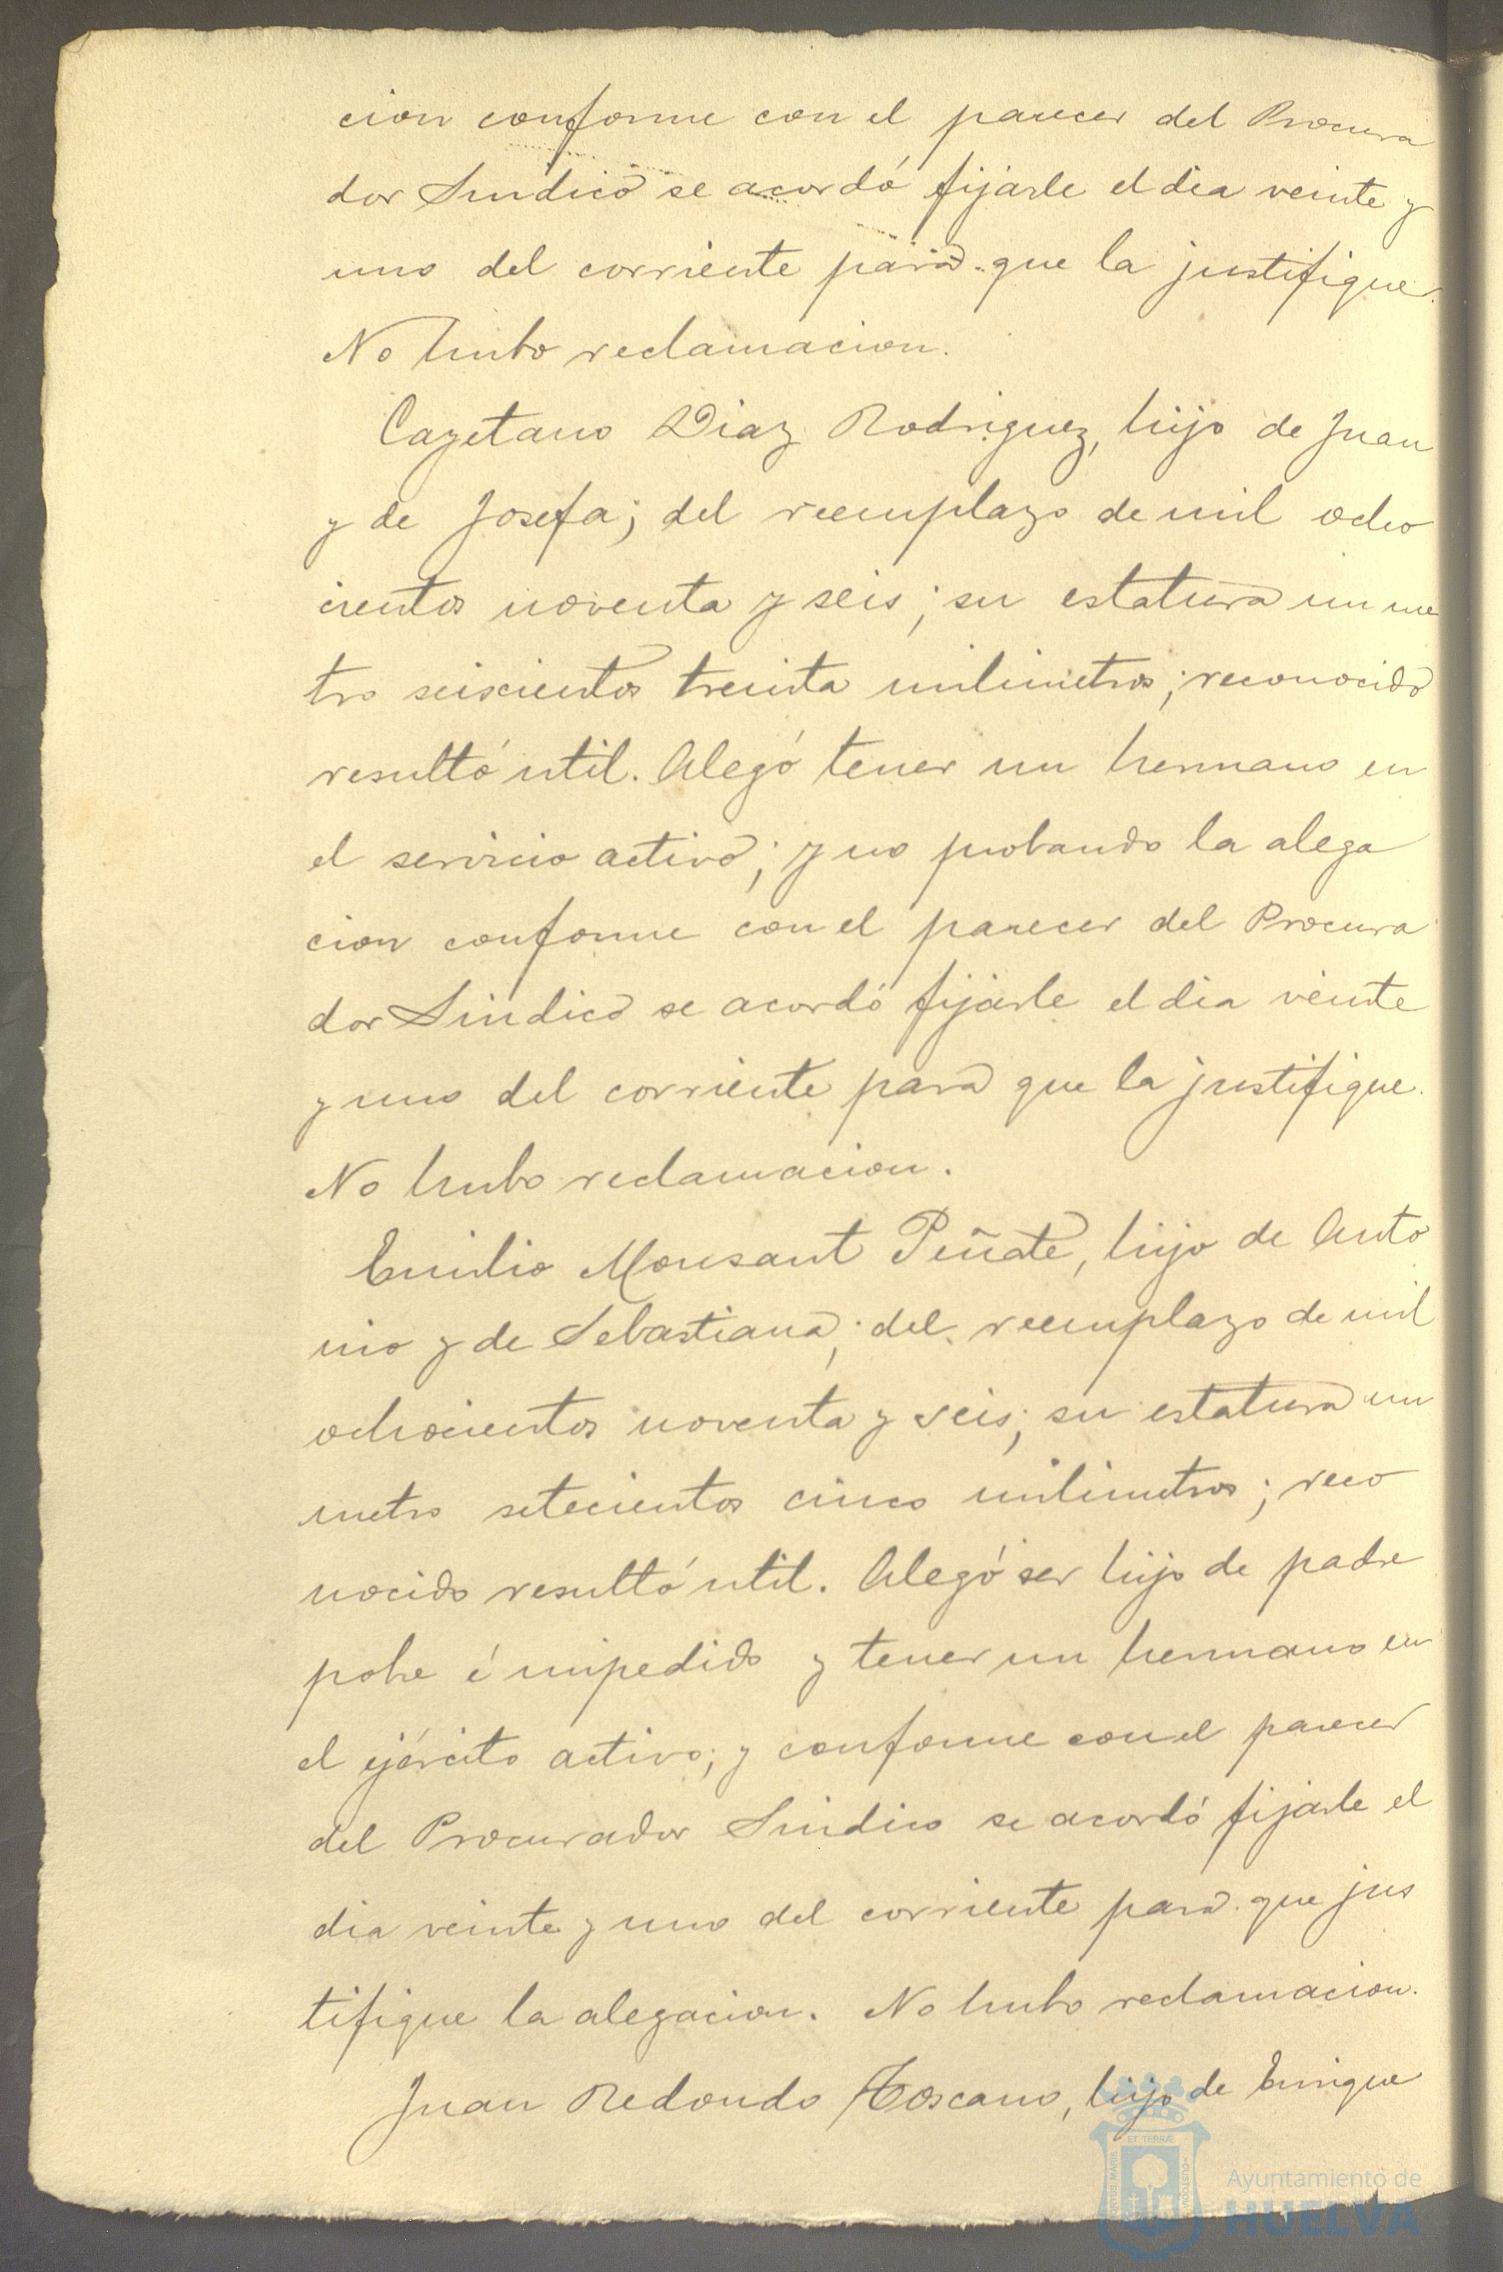 cion conforme con el parecer del Procura
dor Sindico se acordó fijarle el dia veinte y
uno del corriente para que la justifique.
No hubo reclamacion.
Cayetano Diaz Rodriguez, hijo de Juan
y de Josefa; del reemplazo de mil ocho
cientos noventa y seis; su estatura un me
tro seiscientos treinta milimetros; reconocido
resultó util. Alegó tener un hermano en
el servicio activo; y no probando la alega
cion conforme con el parecer del Procura
dor Sindico se acordó fijarle el dia veinte
y uno del corriente para que la justifique.
No hubo reclamacion.
Emilio Monsant Peñate, hijo de Anto
nio y de Sebastiana; del reemplazo de mil
ochocientos noventa y seis; su estatura un
metro setecientos cinco milimetros; reco
nocido resultó util. Alegó ser hijo de padre
pobre é impedido y tener un hermano en
el ejército activo; y conforme con el parecer
del Procurador Sindico se acordó fijarle el
dia veinte y uno del corriente para que jus
tifique la alegacion. No hubo reclamacion.
Juan Redondo Toscano, hijo de Enrique
Ayuntamiento de
HUELVA